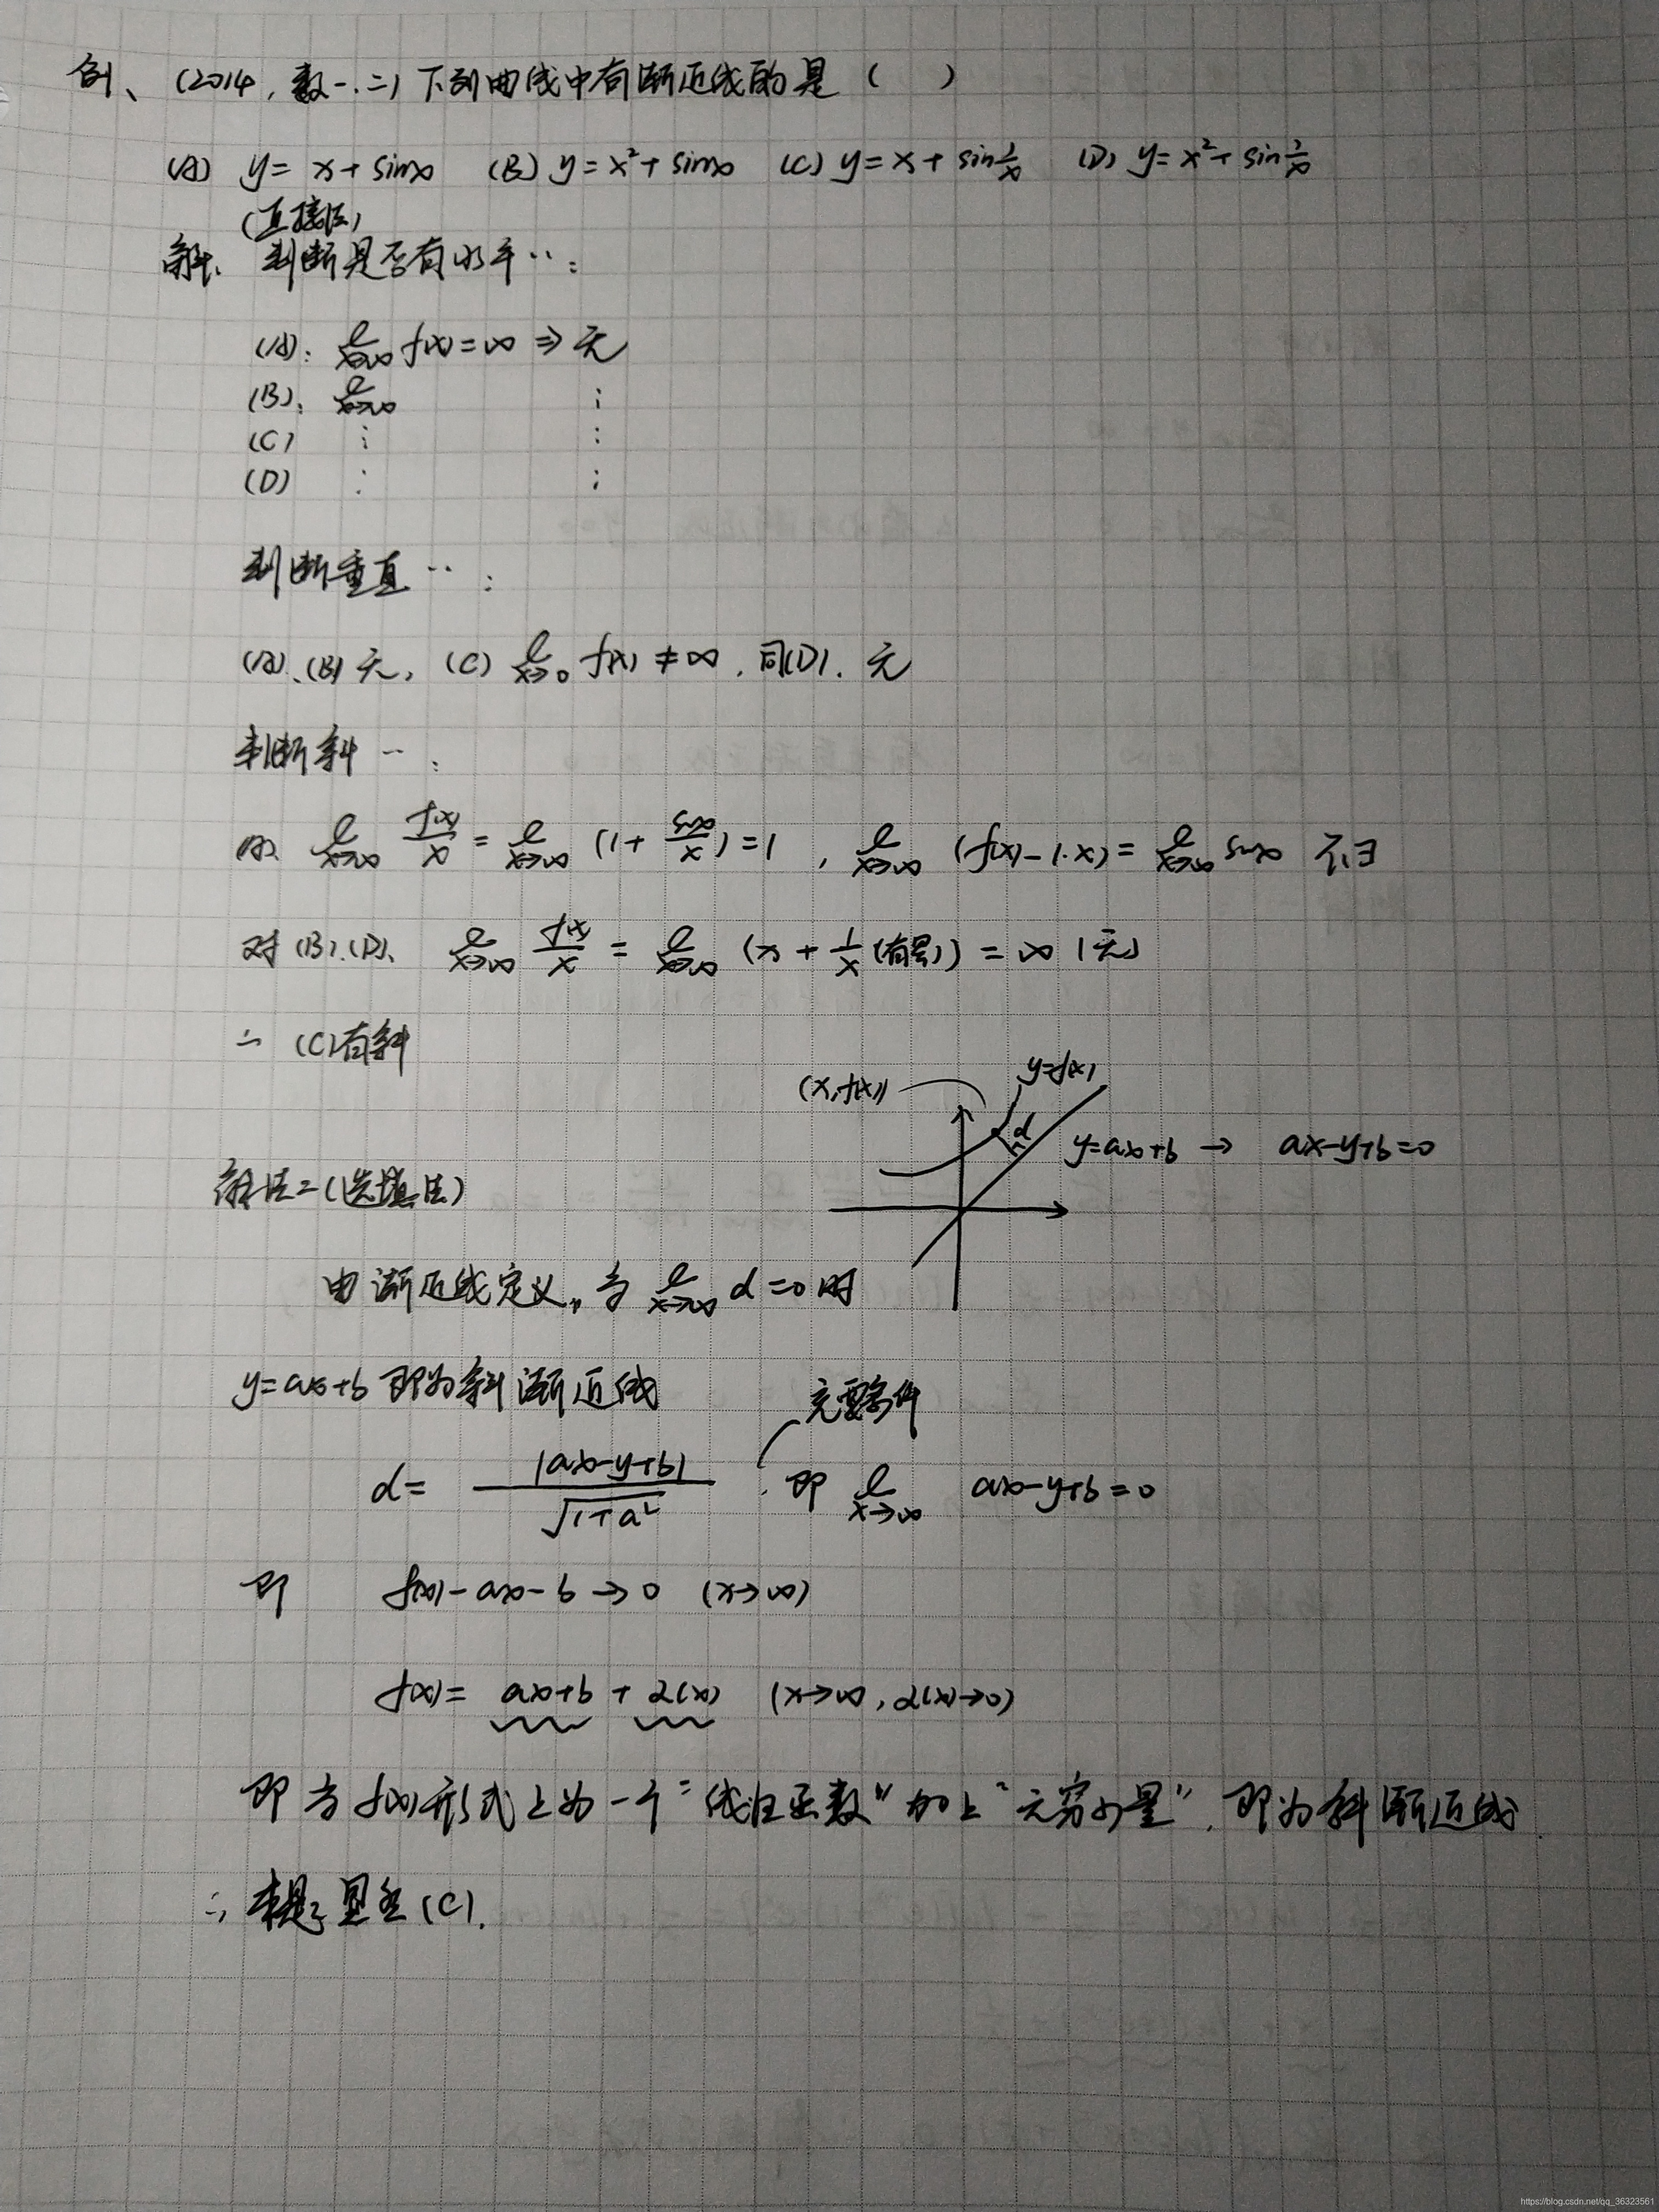 例、(2014,数一.二)下列曲线中有渐近线的是( )
(A) y= x+sinx (B) y=x²+sinx (C) y=x+sin1/x (D) y=x²+sin1/x
(直接法)
解、判断是否有水平…:
(A): l x→∞ f(x)=∞ ⇒ 无
(B): l x→∞ ⋮
(C) ⋮ ⋮
(D) ⋮ ⋮
判断垂直…:
(A)、(B)无, (C) l x→0 f(x)≠∞, 同(D). 无
判断斜…:
(A)、l x→∞ f(x)/x = l x→∞ (1+sinx/x)=1, l x→∞ (f(x)-1·x)= l x→∞ sinx 不∃
对(B).(D)、l x→∞ f(x)/x = l x→∞ (x+1/x(有界))=∞ (无)
∴ (C)有斜
(x,f(x)) y=f(x)
d
y=ax+b → ax-y+b=0
解法二(选填法)
由渐近线定义,当 l x→∞ d=0时
y=ax+b 即为斜渐近线
充要条件
d= |ax-y+b|/√1+a² . 即 l x→∞ ax-y+b=0
即 f(x)-ax-b→0 (x→∞)
f(x)= ax+b + α(x) (x→∞,α(x)→0)
即当f(x)形式上为一个“线性函数”加上“无穷小量”,即为斜渐近线.
∴ 本题显然(C).
https://blog.csdn.net/qq_36323561